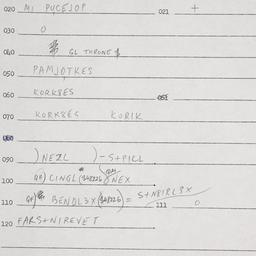 020 MI PUCEJOP 021 +
030 0
040 GL THRONE $
050 PAMJOTKES
060 KORK8ES 061
070 KORK8ES KORIK
080
090 )NEZL )-S+PILL
100 CINGL NEX
110 BENDL3X = S+NBIRL3X 111 0
120 FARS+NIREVET